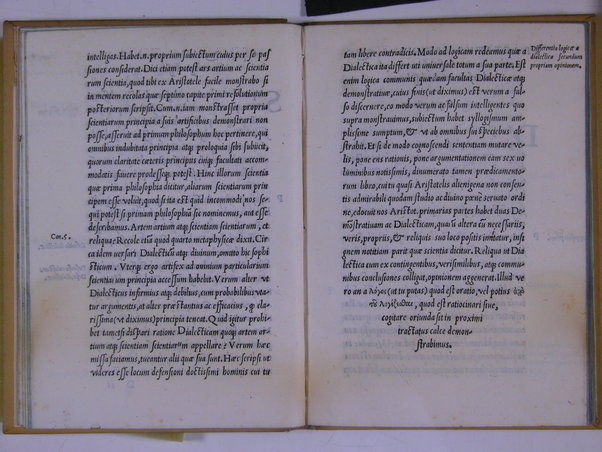 intelligas. Habet.n. proprium subiectum cuius per se pas
siones considerat. Dici etiam potest ars artium ac scientia
rum scientia, quod tibi ex Aristotele facile monstrabo si
in mentem recolas quæ septimo capite primi resolutionum
posteriorum scripsit. Cum.n.iam monstrasset propria
scientiarum principia a suis artificibus demonstrari non
posse, asseruit ad primum philosophum hoc pertinere, qui
omnibus indubitata principia atq; proloquia sibi subiicit,
quorum claritate cæteris principiis se cuiq; facultati accom-
modatis fauere prodesseq; potest. Hinc illorum scientia
quæ prima philosophia dicitur, aliarum scientiarum prin
cipem esse voluit, quod si ita est quid incommodi nos se-
qui posset si primam philosophiam sic nominemus, aut esse
describamus. Artem artium atq; scientiam scientiarum, et
Con.5.
reliqua? Recole etiam quod quarto metaphysicæ dixit. Cir
ca idem uersari Dialecticã atq; diuinum, omitto hic sophi
sticum. Vterq; ergo artifex ad omnium particularium
scientiarum principia accessum habebit. Verum alter vt
Dialecticus infirmius atq; debilius, cum probabilibus vta-
tur argumentis, at alter præstantius ac efficacius, q̃ cla-
rissima (vt diximus) principia teneat. Quid igitur prohi-
bet tametsi dispari ratione Dialecticam quoq; artem ar-
tium atq; scientiam scientiarum appellare? Verum hæc
missa faciamus, tueantur alii quæ sua sunt. Hæc scripsi ut
videres esse locum defensioni doctissimi hominis cui tu
tam libere contradicis. Modo ad logicam redeamus quæ a
Differentia logicæ a
dialectica secundum
propriam opinionem.
Dialectica ita differt uti uniuersale totum a sua parte. Est
enim logica communis quædam facultas Dialecticæ atq;
demonstratiuæ, cuius finis (ut diximus) est verum a fal-
so discernere, eo modo verum ac falsum intelligentes quo
supra monstrauimus, subiectum habet syllogismum am-
plissime sumptum, & vt ab omnibus suis speciebus ab-
strahit. Et si de modo cognoscendi sententiam mutare ve-
lis, pone ens rationis, pone argumentationem eam sex uo
luminibus notissimis, dinumerato tamen prædicamento-
rum libro, cuius quasi Aristotelis alienigena non consen-
tis admirabili quodam studio ac diuino pæne seruato ordi
ne, edocuit nos Aristot. primarias partes habet duas De-
mõstratiuam ac Dialecticam, quarũ altera cũ necessariis,
veris, propriis, & reliquis suo loco positis immoratur, insi
gnem notitiam parit quæ scientia dicitur. Reliqua vt Dia
lectica cum ex contingentibus, verisimilibus, atq; commu-
nibus conclusiones colligat, opinionem aggenerat. Illud ve
ro an a λόγος (at tu putas) quod est oratio, vel potius ἀπὸ
τοῦ λογίζεσθαι, quod est ratiocinari siue,
cogitare oriunda sit in proximi
tractatus calce demon-
strabimus.